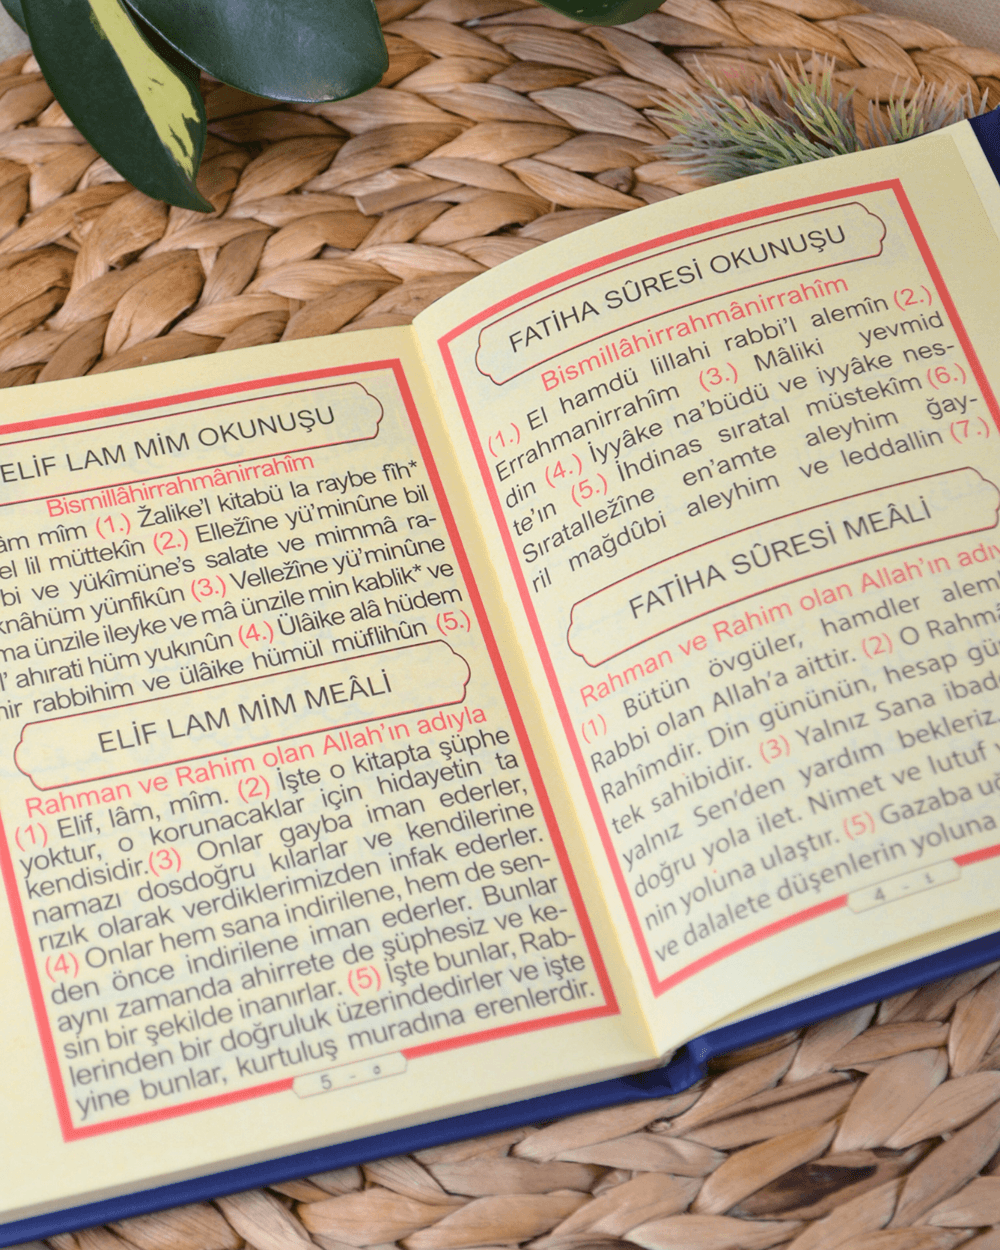 ELİF LAM MİM OKUNUŞU
Bismillâhirrahmânirrahîm
mîm (1.) Žalike'l kitabü la raybe fîh*
lil müttekîn (2.) Elležîne yü'minûne bil
ve yükîmüne's salate ve mimmâ ra-
yünfikûn (3.) Velležîne yü'minûne
ünzile ileyke ve mâ ünzile min kablik* ve
ahırati hüm yukınûn (4.) Ülâike alâ hüdem
rabbihim ve ülâike hümül müflihûn (5.)
ELİF LAM MİM MEÂLİ
Rahman ve Rahim olan Allah'ın adıyla
(1) Elif, lâm, mîm. (2) İşte o kitapta şüphe
yoktur, o korunacaklar için hidayetin ta
kendisidir.(3) Onlar gayba iman ederler,
namazı dosdoğru kılarlar ve kendilerine
rızık olarak verdiklerimizden infak ederler.
(4) Onlar hem sana indirilene, hem de sen-
den önce indirilene iman ederler. Bunlar
aynı zamanda ahirrete de şüphesiz ve ke-
sin bir şekilde inanırlar. (5) İşte bunlar, Rab-
lerinden bir doğruluk üzerindedirler ve işte
yine bunlar, kurtuluş muradına erenlerdir.
5 - ٥
FATİHA SÛRESİ OKUNUŞU
Bismillâhirrahmânirrahîm
(1.) El hamdü lillahi rabbi'l alemîn (2.)
Errahmanirrahîm (3.) Mâliki yevmid
din (4.) İyyâke na'büdü ve iyyâke nes-
te'ın (5.) İhdinas sıratal müstekîm (6.)
Sıratalležîne en'amte aleyhim ğay-
ril mağdûbi aleyhim ve leddallin (7.)
FATİHA SÛRESİ MEÂLİ
Rahman ve Rahim olan Allah'ın
(1) Bütün övgüler, hamdler
Rabbi olan Allah'a aittir. (2) O
Rahîmdir. Din gününün, hesap
tek sahibidir. (3) Yalnız Sana
yalnız Sen'den yardım bekleriz.
doğru yola ilet. Nimet ve lutuf
nin yoluna ulaştır. (5) Gazaba
ve dalalete düşenlerin yoluna
4 - ٤